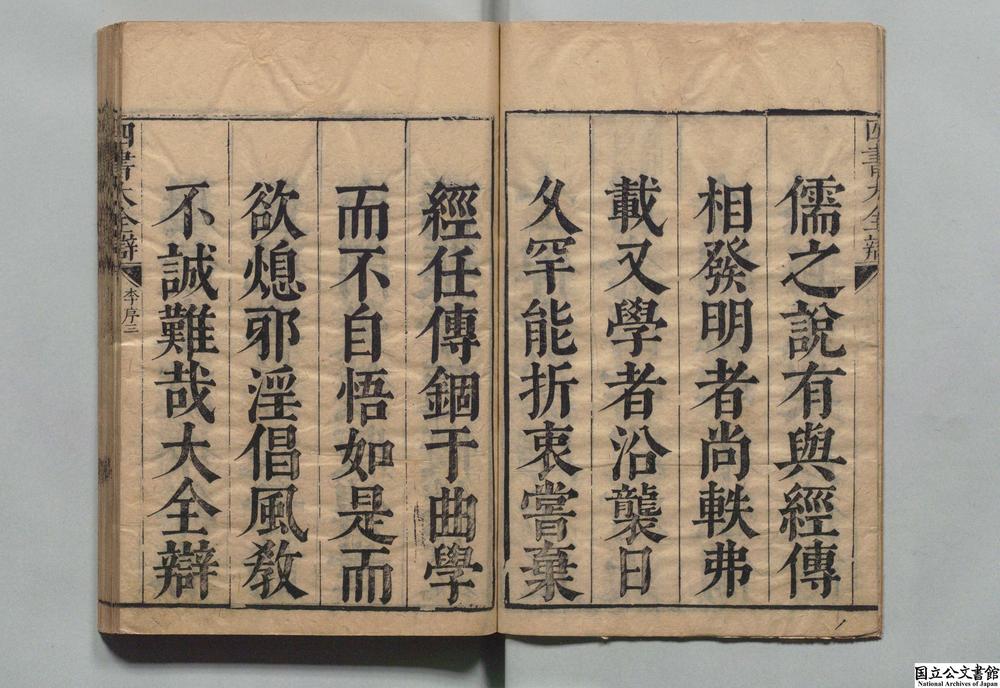 儒之說有與經傳
相發明者尚軼弗
載又學者沿襲日
久罕能折衷嘗棄
經任傳錮于曲學
而不自悟如是而
欲熄邪淫倡風敎
不誠難哉大全辯
四書大全辯
四書大全辯 李序三
国立公文書館
National Archives of Japan